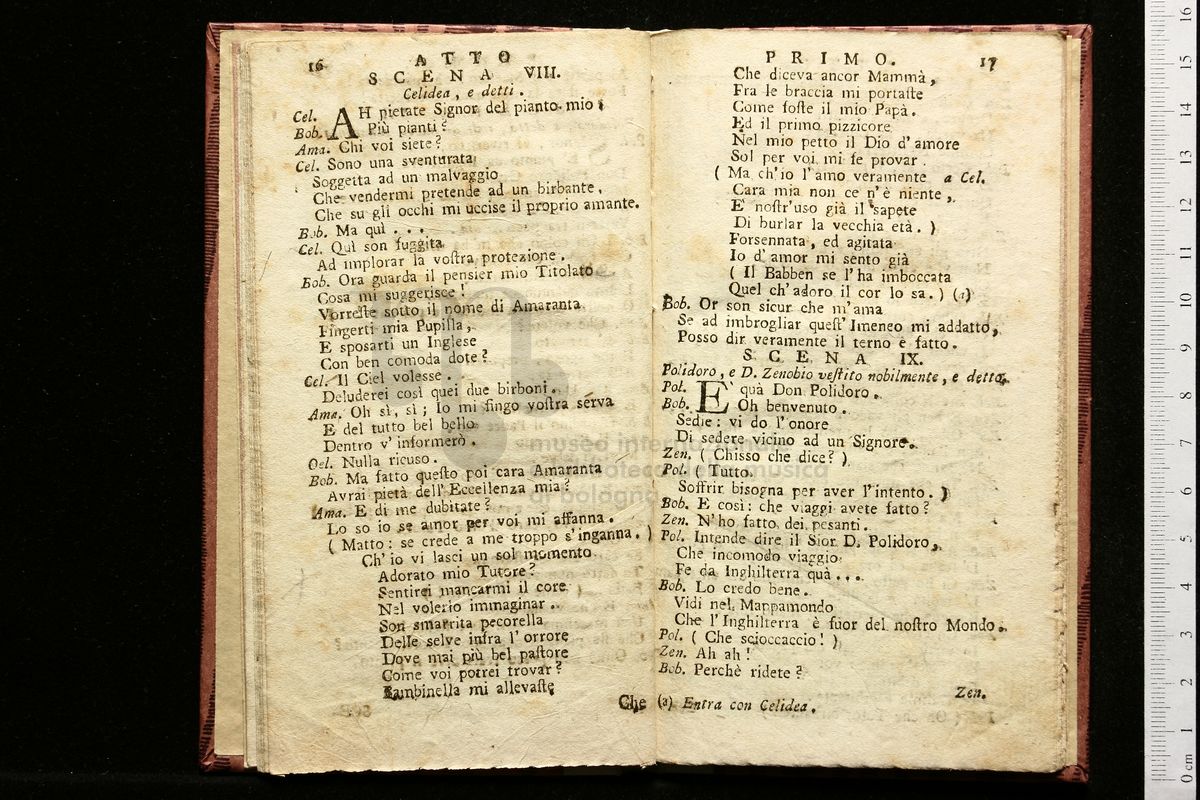 16
ATTO
SCENA VIII.
Celidea, e detti.
Cel. AH pietate Signor del pianto mio!
Bob. Più pianti?
Ama. Chi voi siete?
Cel. Sono una sventurata
Soggetta ad un malvaggio
Che vendermi pretende ad un birbante,
Che su gli occhi mi uccise il proprio amante.
Bob. Ma quì . . .
Cel. Quì son fuggita
Ad implorar la vostra protezione.
Bob. Ora guarda il pensier mio Titolato
Cosa mi suggerisce!
Vorreste sotto il nome di Amaranta
Fingerti mia Pupilla,
E sposarti un Inglese
Con ben comoda dote?
Cel. Il Ciel volesse.
Deluderei così quei due birboni.
Ama. Oh sì, sì; Io mi fingo vostra serva
E del tutto bel bello
Dentro v'informerò.
Cel. Nulla ricuso.
Bob. Ma fatto questo poi cara Amaranta
Avrai pietà dell'Eccellenza mia?
Ama. E di me dubitate?
Lo so io se amor per voi mi affanna.
( Matto: se crede a me troppo s'inganna. )
Ch'io vi lasci un sol momento
Adorato mio Tutore?
Sentirei mancarmi il core
Nel volerlo immaginar.
Son smarrita pecorella
Delle selve infra l'orrore
Dove mai più bel pastore
Come voi potrei trovar?
Bambinella mi allevaste
Che
PRIMO.
17
Che diceva ancor Mammà,
Fra le braccia mi portaste
Come foste il mio Papà.
Ed il primo pizzicore
Nel mio petto il Dio d'amore
Sol per voi mi fe provar.
( Ma ch'io l'amo veramente a Cel.
Cara mia non ce n'è niente,
E' nostr'uso già il sapete
Di burlar la vecchia età. )
Forsennata, ed agitata
Io d'amor mi sento già
( Il Babben se l'ha imboccata
Quel ch'adoro il cor lo sa. ) (a)
Bob. Or son sicur che m'ama
Se ad imbrogliar quest'Imeneo mi addatto,
Posso dir veramente il terno è fatto.
SCENA IX.
Polidoro, e D. Zenobio vestito nobilmente, e detto.
Pol. E' quà Don Polidoro.
Bob. Oh benvenuto.
Sedie: vi do l'onore
Di sedere vicino ad un Signore.
Zen. ( Chisso che dice? )
Pol. ( Tutto
Soffrir bisogna per aver l'intento. )
Bob. E così: che viaggi avete fatto?
Zen. N'ho fatto dei pesanti.
Pol. Intende dire il Sior D. Polidoro,
Che incomodo viaggio
Fe da Inghilterra quà . . .
Bob. Lo credo bene.
Vidi nel Mappamondo
Che l'Inghilterra è fuor del nostro Mondo.
Pol. ( Che scioccaccio! )
Zen. Ah ah!
Bob. Perchè ridete?
Zen.
(a) Entra con Celidea.
museo internazionale
e biblioteca della musica
di bologna
0 cm 1 2 3 4 5 6 7 8 9 10 11 12 13 14 15 16